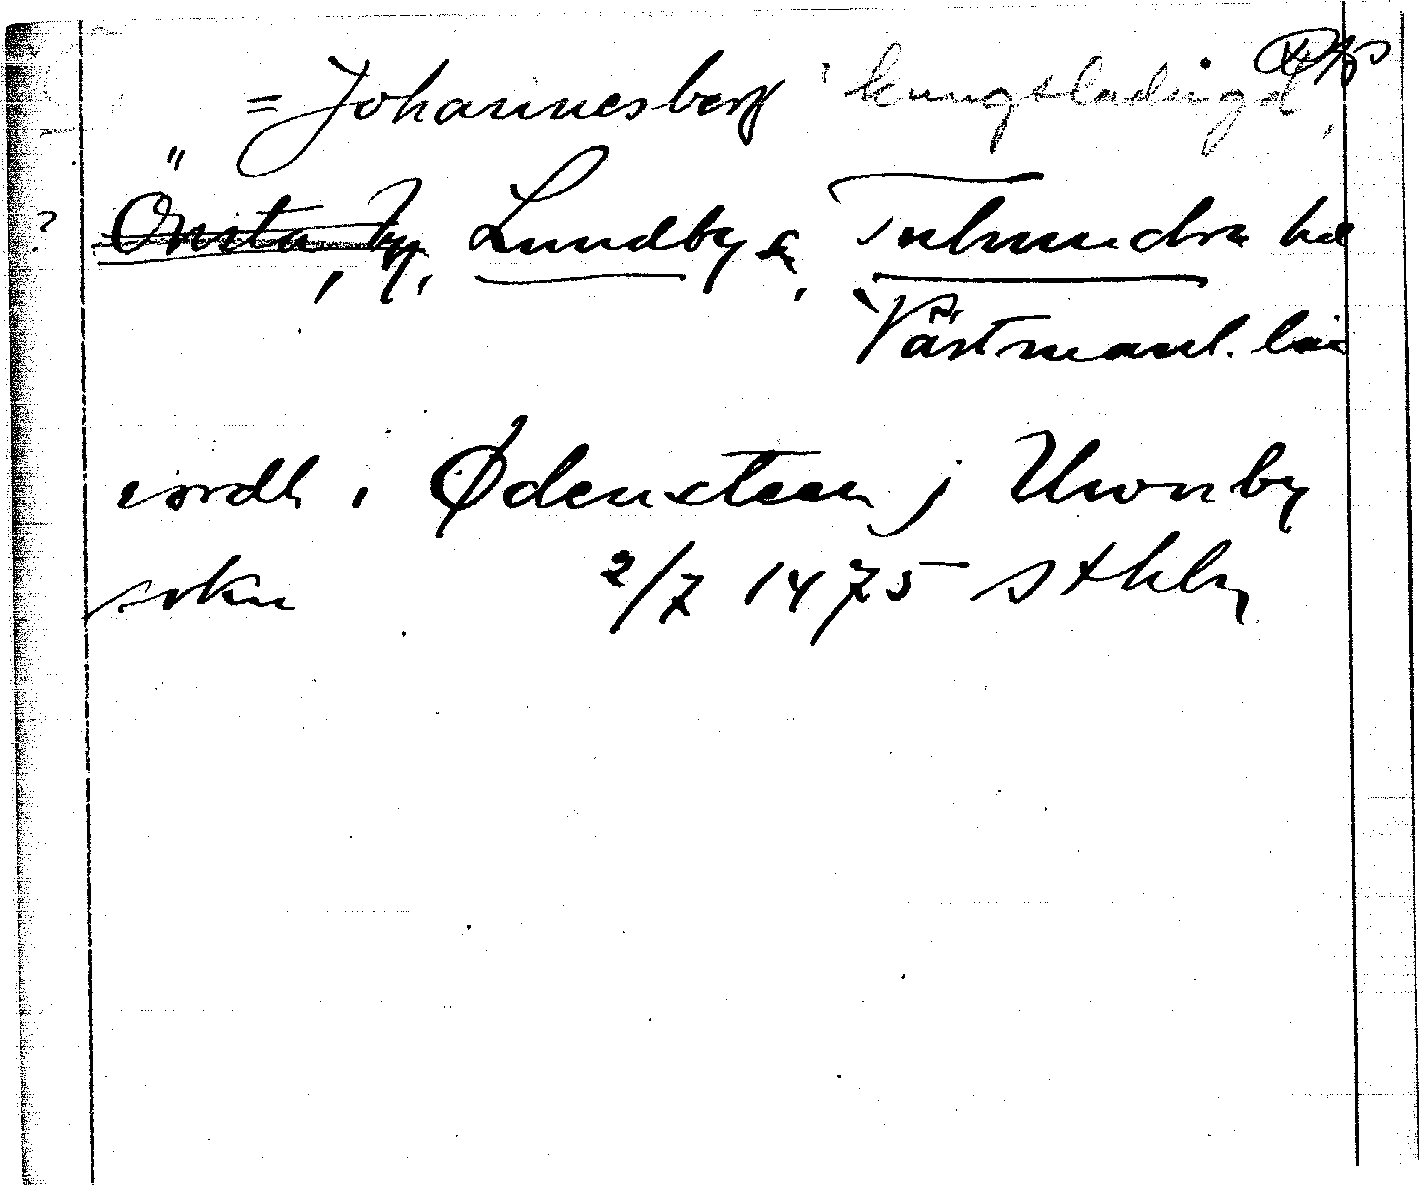 = Johannesberg kungsladugd,
? Önsta, by, Lundby sn, Tuhundra hd
Västmanl. län
i Ødensteen j Hwonby
sokn 2/7 1475 sthlm